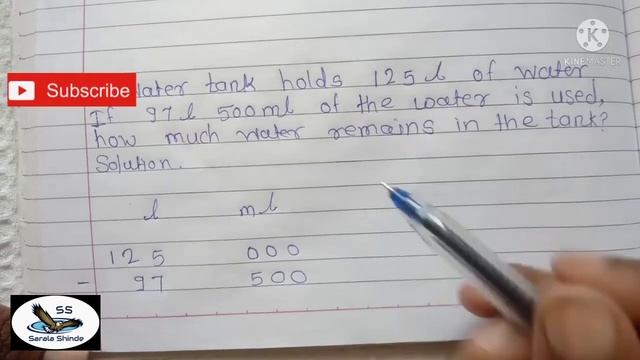 KINEMASTER
Subscribe
Water tank holds 125 l of water
If 97 l 500 ml of the water is used,
how much water remains in the tank?
Solution.
l ml
125 000
- 97 500
SS
Sarala Shinde